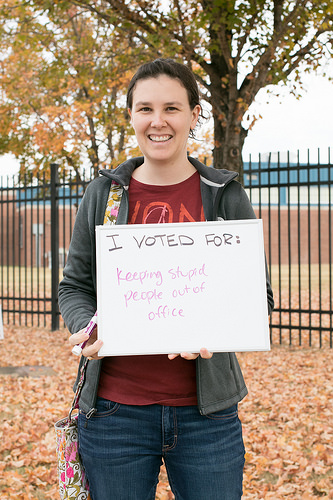 I VOTED FOR:
Keeping stupid
people out of
office